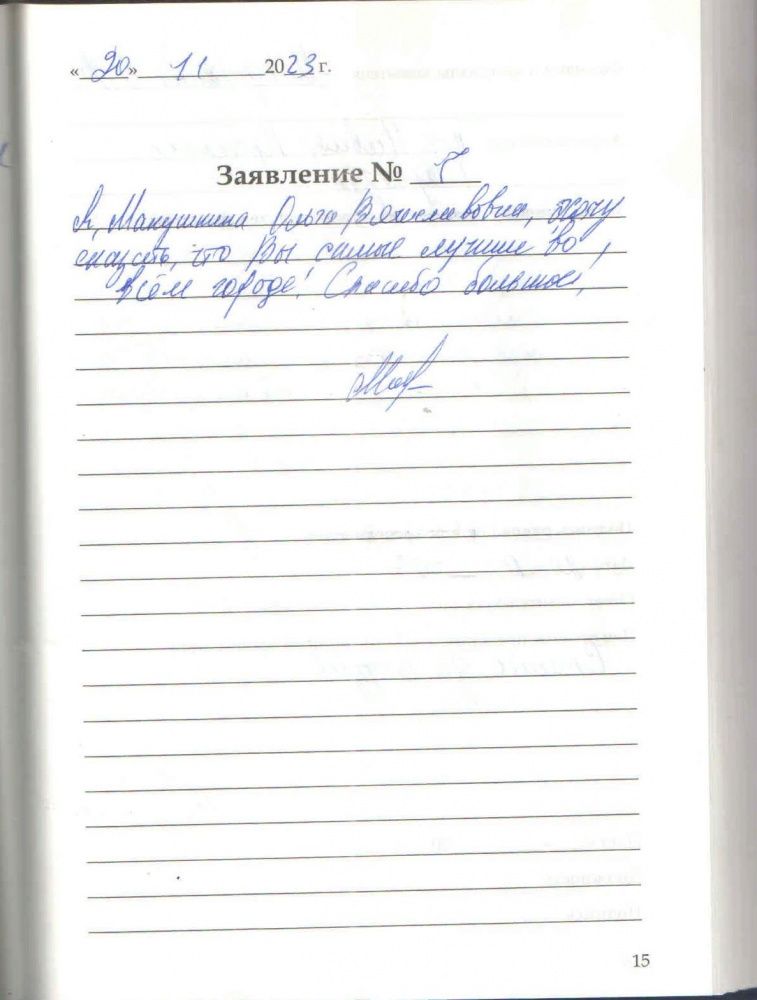 «20» 11 2023 г.
Заявление № 5
Я, Макушкина Ольга Вячеславовна, хочу
сказать, что Вы самые лучшие во
всём городе! Спасибо большое!
15